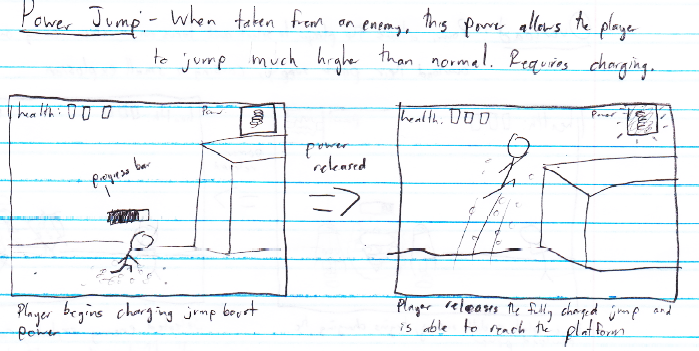 Power Jump:- When taken from an enemy, this power allows the player
to jump much higher than normal. Requires charging.
health:
Power
progress bar
power
released
health:
Power
Player begins charging jump boost
power
Player releases the fully charged jump and
is able to reach the platform